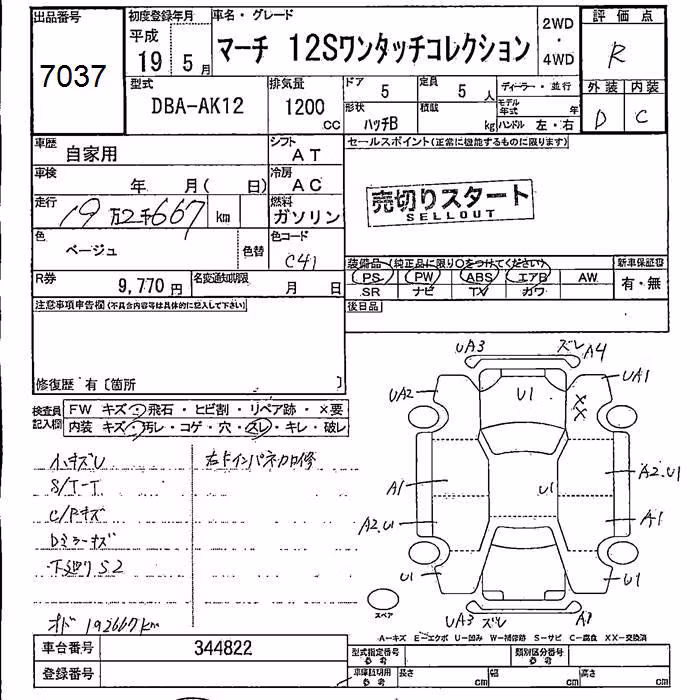 出品番号
7037
初度登録年月
平成
19 5月
車名・グレード
マーチ 12Sワンタッチコレクション
2WD
・
4WD
評価点
R
外装 内装
D C
型式
DBA-AK12
排気量
1200
cc
ドア
5
定員
5 人
形状
ハッチB
積載
kg
ディーラー・並行
モデル年式 年
ハンドル 左・右
車歴
自家用
シフト
AT
車検
年 月( 日)
冷房
AC
走行
19万2千667 km
燃料
ガソリン
色
ベージュ
色替
色コード
C41
R券
9,770円
名変通知期限
月 日
セールスポイント(正常に機能するものに限ります)
売切りスタート
SELLOUT
装備品(純正品に限り○をつけてください)
PS PW ABS エアB AW
SR ナビ TV カワ
新車保証書
有・無
後日品
注意事項申告欄(不具合内容等は具体的に記入して下欄)
修復歴 有〔箇所 〕
検査員記入欄
FW キズ・飛石・ヒビ割・リペア跡・×要
内装 キズ・汚レ・コゲ・穴・スレ・キレ・破レ
小キズU
S/T-T
C/Pキズ
Dミラーキズ
下廻りS2
オド 192667km
右Fインパネカロ修
UA3 ズレ A4
UA2 U1 UA1
XX
A1 U1 A2.U1
A2.U1 A1
U1 U1
UA3 ズレ A1
スペア
A―キズ E―エクボ U―凹み W―補修跡 S―サビ C―腐食 XX―交換済
車台番号
344822
登録番号
型式指定番号
参考
類別区分番号
参考
車庫証明用
参考
長さ cm
幅 cm
高さ cm